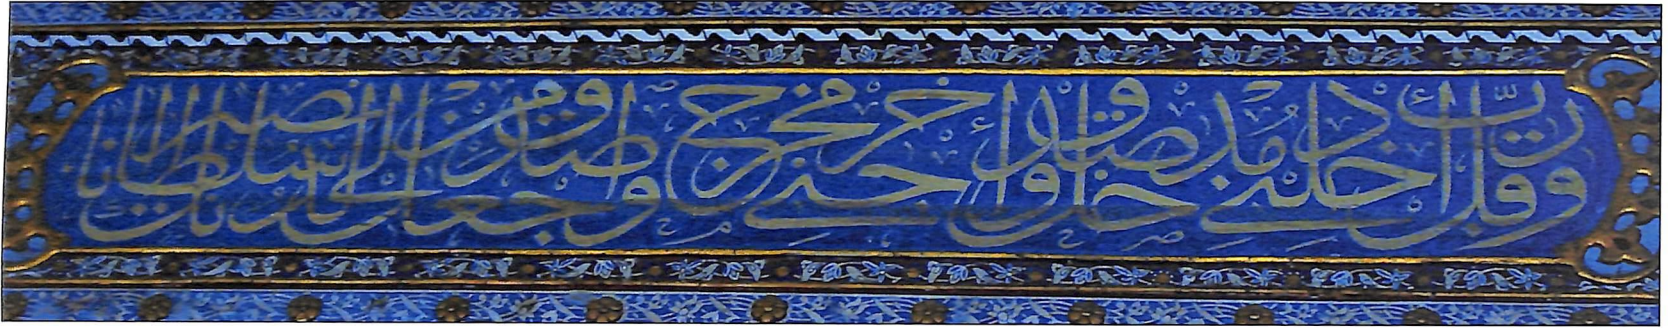 وقل رب أدخلني مدخل صدق وأخرجني مخرج صدق واجعل لي من لدنك سلطانا نصيرا